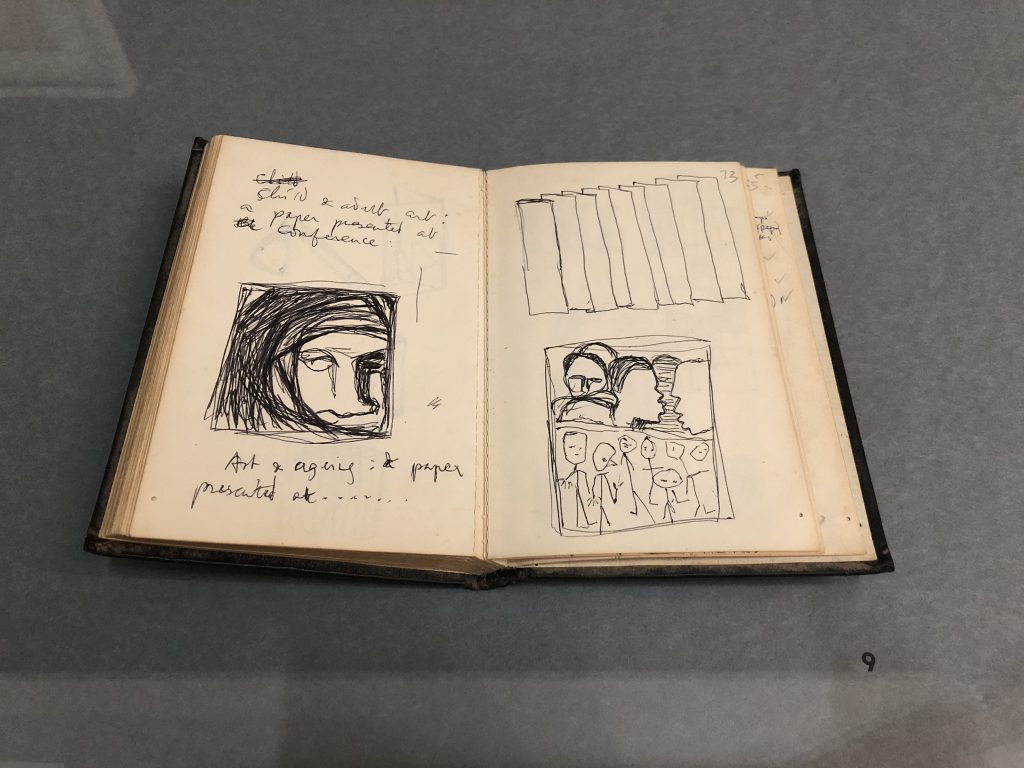 Child & adult art:
a paper presented at
Conference:
Art & ageing: paper
presented at........
13
9